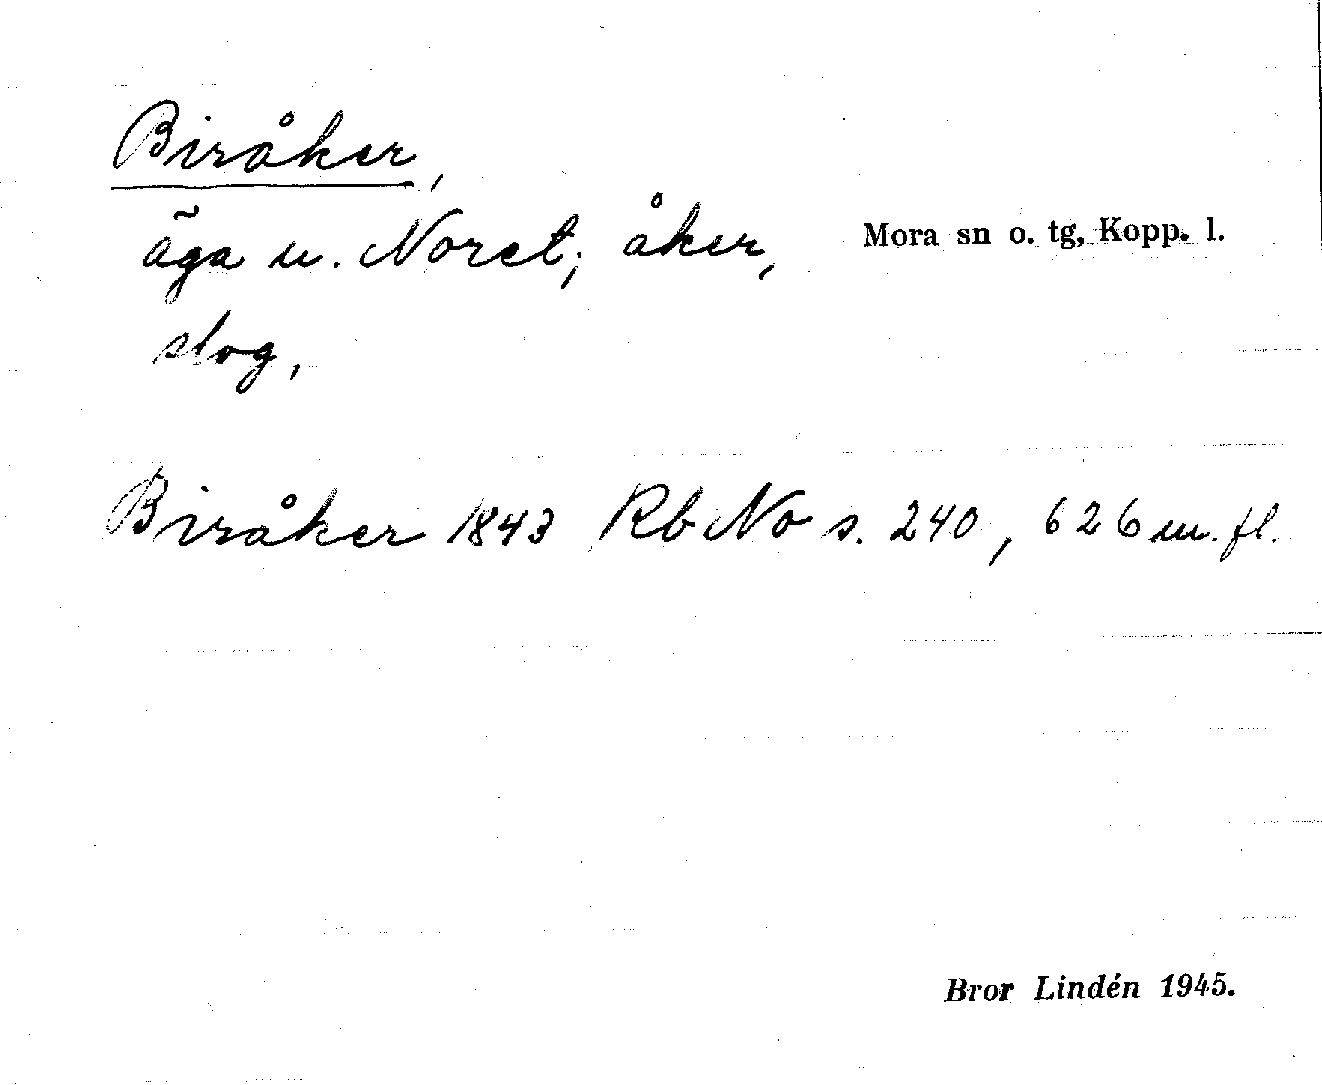 Biråker,
äga u. Noret; åker,
Mora sn o. tg, Kopp. l.
slog,
Biråker 1843 Rb No s. 240, 626 m. fl.
Bror Lindén 1945.